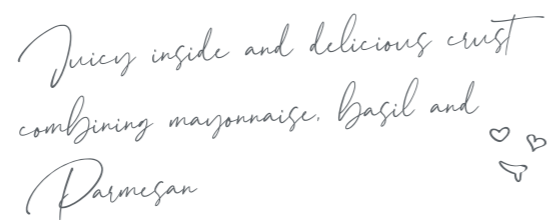 Juicy inside and delicious crust
combining mayonnaise. Basil and
Parmesan